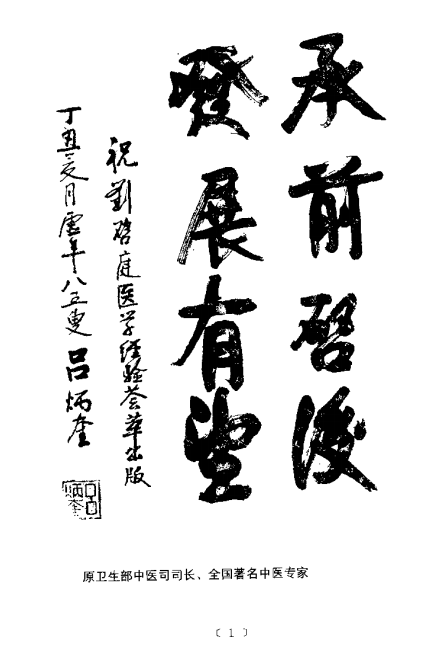 承前啓後
發展有望
祝劉啓庭医学经验荟萃出版
丁丑亥月虚年八五叟 吕炳奎
吕炳奎
原卫生部中医司司长、全国著名中医专家
〔1〕